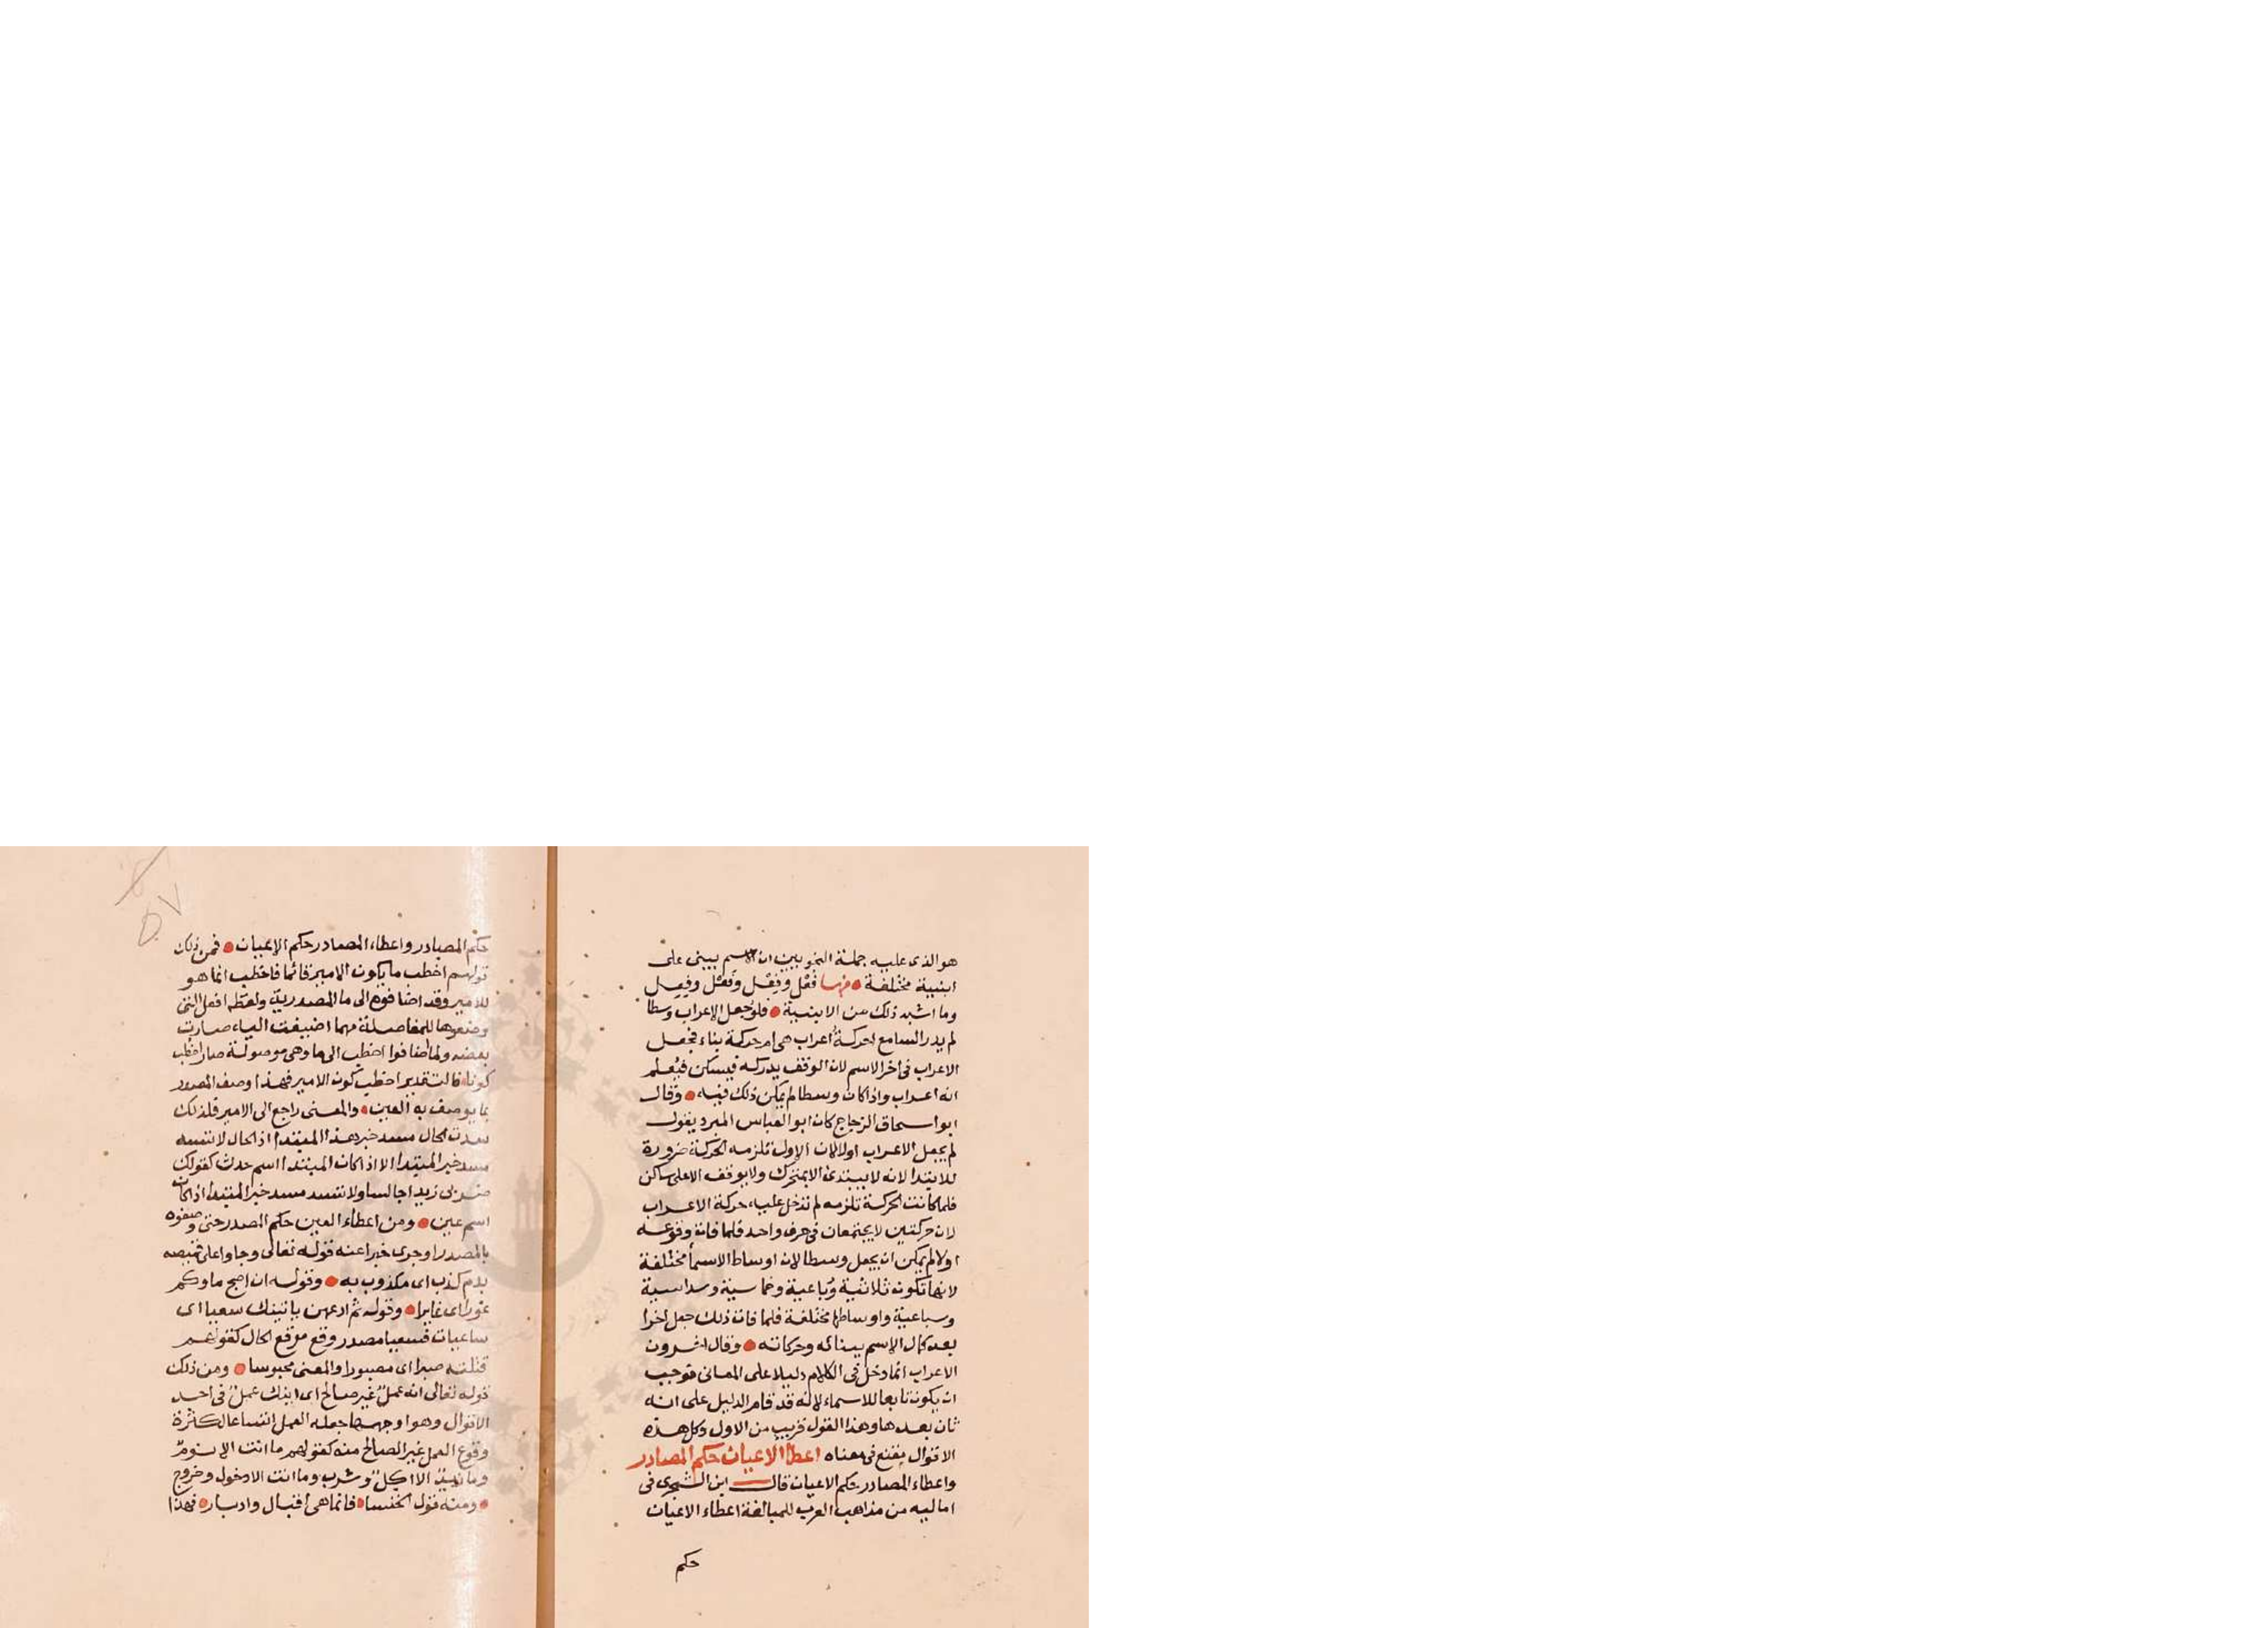 هو الذى عليه جملة النحويين ان الاسم يبنى على
ابنية مختلفة منها فَعْل وفِعْل وفُعْل وفعيل
وما اشبه ذلك من الابنية فلو جعل الاعراب وسطا
لم يدر السامع احركة اعراب هى ام حركة بناء فجعل
الاعراب فى اخر الاسم لان الوقف يدركه فيسكن فيُعلم
انه اعراب واذا كان وسطا لم يمكن ذلك فيه وقال
ابو اسحاق الزجاج كان ابو العباس المبرد يقول
لم يجعل الاعراب اولا لان الاول تلزمه الحركة ضرورة
للابتدا لانه لا يبتدئ الا بمتحرك ولا يوقف الا على ساكن
فلما كانت الحركة تلزمه لم تدخل عليه حركة الاعراب
لان حركتين لا يجتمعان فى حرف واحد فلما فات وقوعه
اولا لم يمكن ان يجعل وسطا لان اوساط الاسما مختلفة
لانها تكون ثلاثية ورُباعية وخماسية وسداسية
وسباعية واوساطها مختلفة فلما فات ذلك جعل اخرا
بعد كمال الاسم ببنائه وحركاته وقال اخرون
الاعراب انما دخل فى الكلام دليلا على المعانى فوجب
ان يكون تابعا للاسماء لانه قد قام الدليل على انه
ثان بعدها وهذا القول قريب من الاول وكل هذه
الاقوال يقنع فى معناه اعطا الاعيان حكم المصادر
واعطاء المصادر حكم الاعيان قال ابن الشجرى فى
اماليه من مذاهب العرب للمبالغة اعطاء الاعيان
حكم
حكم المصادر واعطاء المصادر حكم الاعيان فمن ذلك
قولهم اخطب ما يكون الامير قائما فاخطب انما هو
للامير وقد اضافوه الى ما المصدرية ولفظه افعل التى
وضعوها للمفاضلة مهما اضيفت اليه صارت
بعضه ولما اضافوا اخطب الى ما وهى موصولة صار اخطب
كونا فالتقدير اخطب كون الامير فهذا وصف المصدر
بما يوصف به العين والمعنى راجع الى الامير فلذلك
سدت الحال مسد خبر هذا المبتدا اذ الحال لا تسد
مسد خبر المبتدا الا اذا كان المبتدا اسم حدث كقولك
ضربى زيدا جالسا ولا تسد مسد خبر المبتدا اذا كان
اسم عين ومن اعطاء العين حكم المصدر حتى وصفوه
بالمصدر او جرى خبرا عنه قوله تعالى وجاوا على قميصه
بدم كذب اى مكذوب به وقوله ان اصبح ماوكم
غورا اى غايرا وقوله ثم ادعهن ياتينك سعيا اى
ساعيات فسعيا مصدر وقع موقع الحال كقولهم
قتلته صبرا اى مصبورا والمعنى محبوسا ومن ذلك
قوله تعالى انه عملٌ غير صالح اى ابنك عملٌ فى احد
الاقوال وهو اوجهها جعله العمل اتساعا لكثرة
وقوع العمل غير الصالح منه كقولهم ما انت الا نومٌ
وما زيد الا اكلٌ وشرب وما انت الا دخول وخروج
ومنه قول الخنسا فانما هى اقبال وادبار فهذا